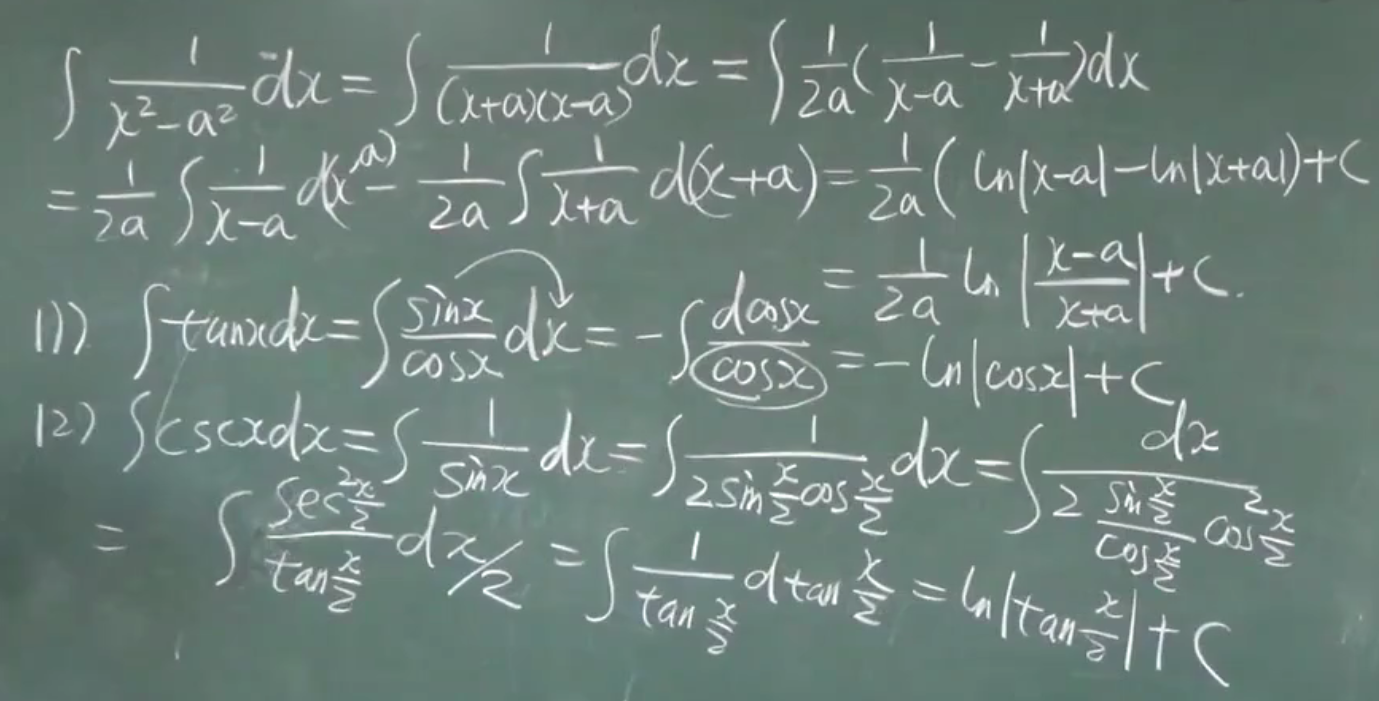 ∫ 1/(x²-a²) dx = ∫ 1/((x+a)(x-a)) dx = ∫ 1/2a (1/(x-a) - 1/(x+a)) dx
= 1/2a ∫ 1/(x-a) d(x-a) - 1/2a ∫ 1/(x+a) d(x+a) = 1/2a ( ln|x-a| - ln|x+a|) + C
= 1/2a ln |(x-a)/(x+a)| + C.
11) ∫ tanx dx = ∫ sinx/cosx dx = - ∫ dcosx/cosx = - ln|cosx| + C
12) ∫ cscx dx = ∫ 1/sinx dx = ∫ 1/(2 sin x/2 cos x/2) dx = ∫ dx/(2 (sin x/2)/(cos x/2) cos² x/2)
= ∫ (sec² x/2)/(tan x/2) d x/2 = ∫ 1/(tan x/2) d tan x/2 = ln|tan x/2| + C